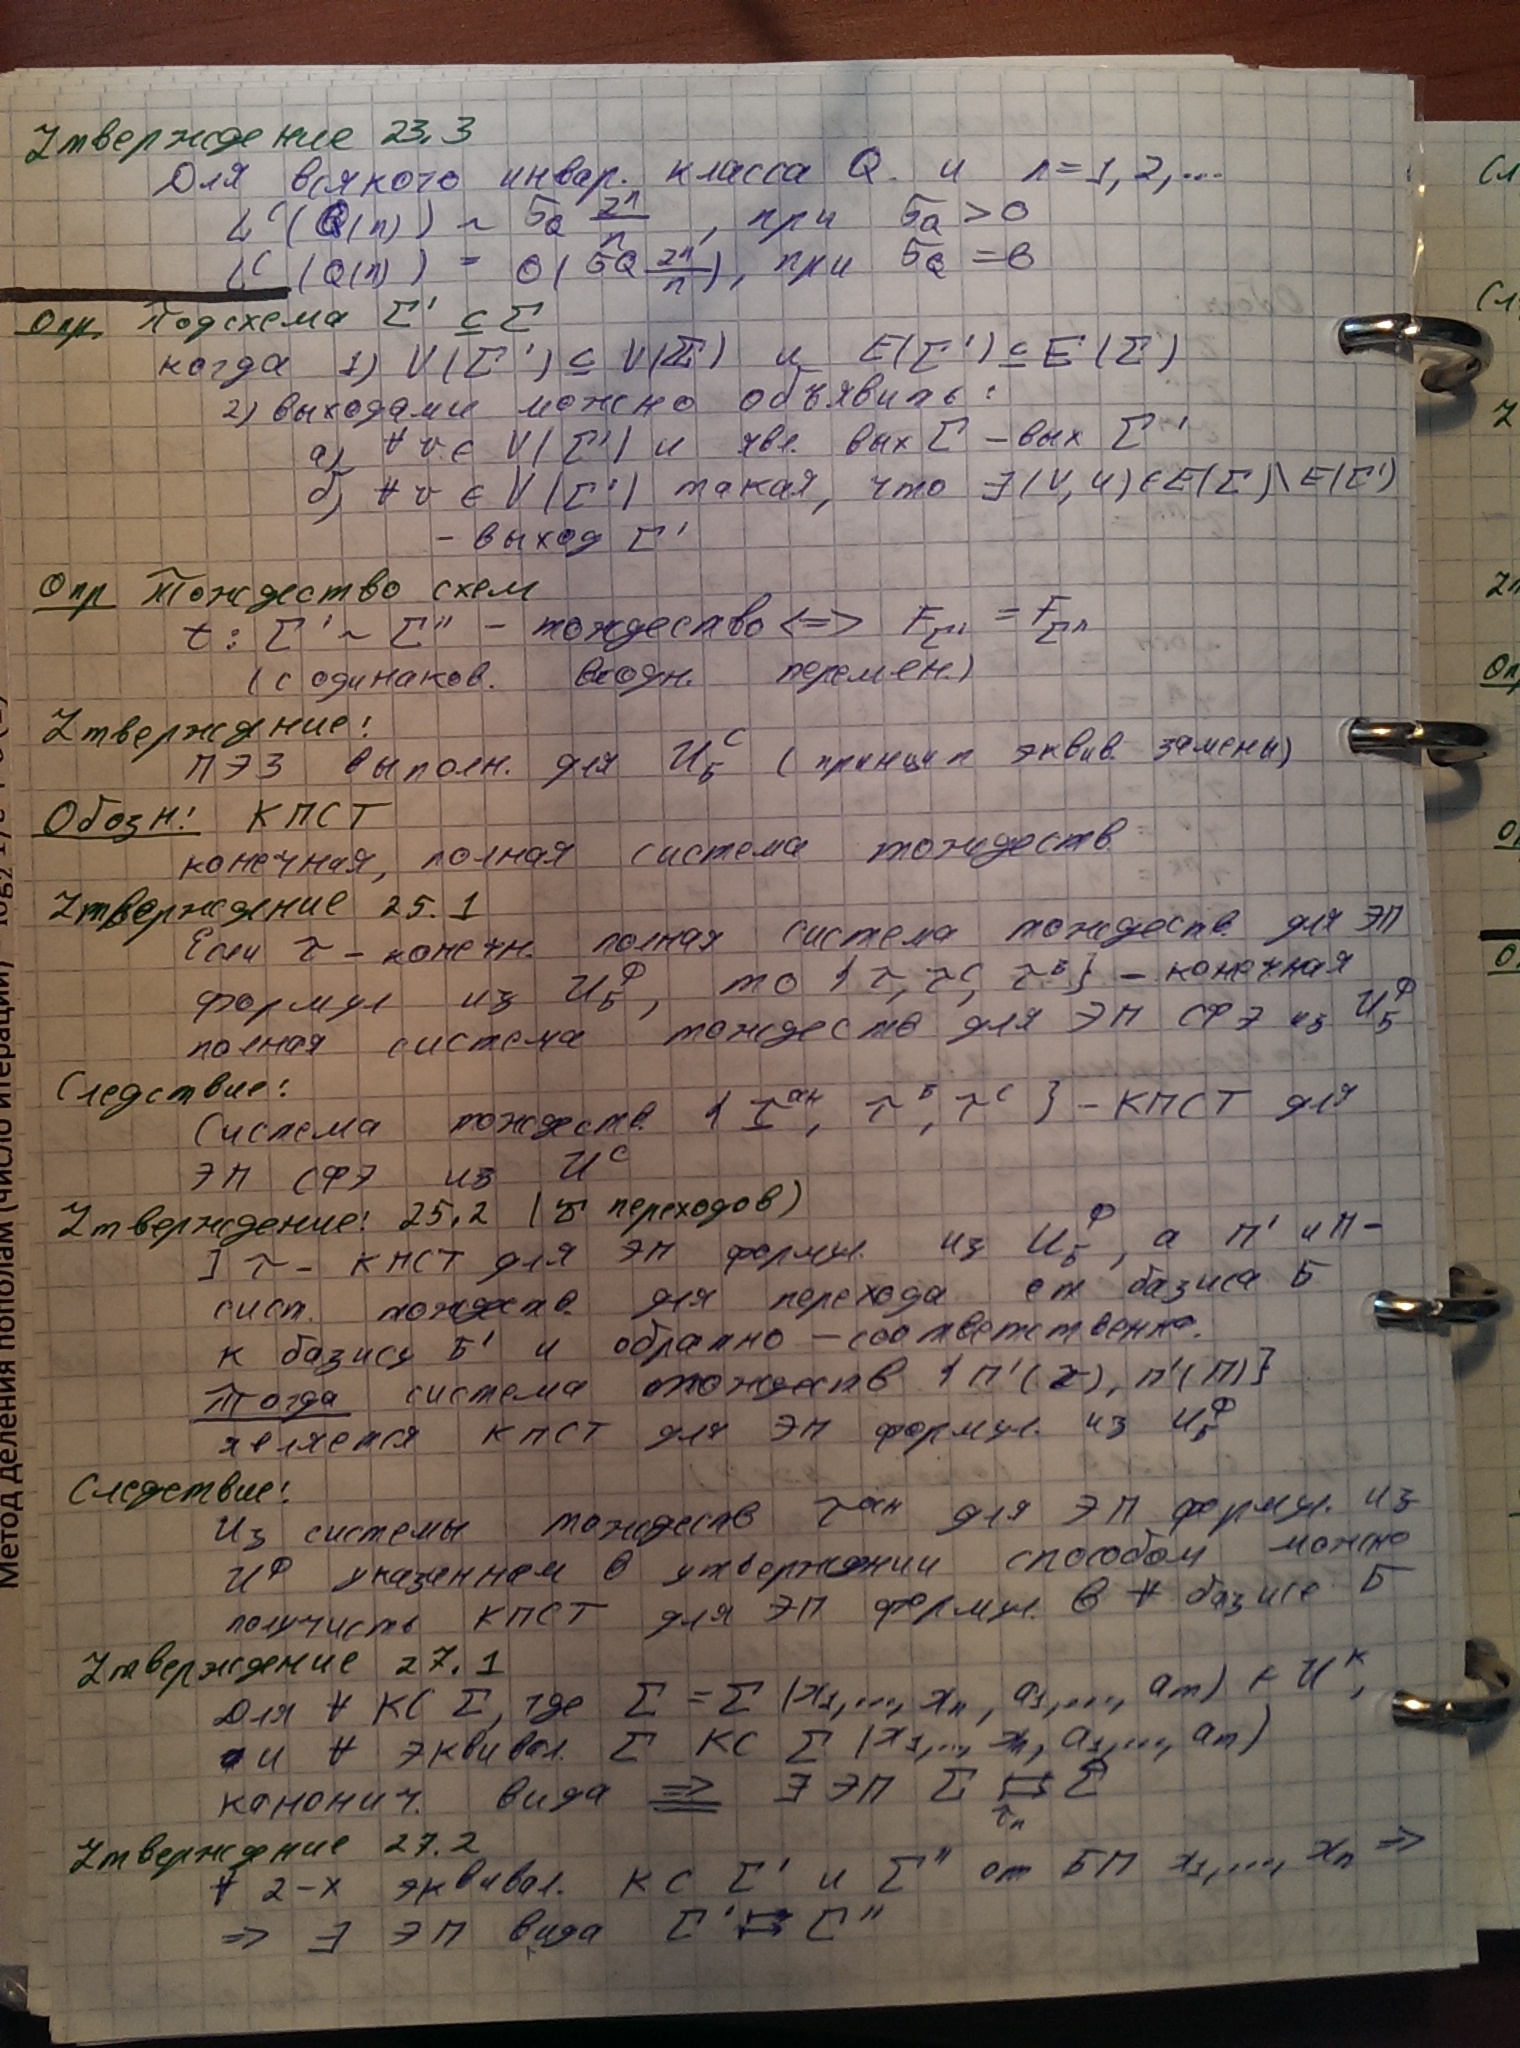 Утверждение 23.3
Для всякого инвар. класса Q и n=1,2,...
L^C(Q(n)) ~ б_Q 2^n/n, при б_Q > 0
L^C(Q(n)) = o(б_Q 2^n/n), при б_Q = 0
Опр Подсхема Σ' ⊆ Σ
когда 1) V(Σ') ⊆ V(Σ) и E(Σ') ⊆ E(Σ)
2) выходами можно объявить:
а) ∀ v ∈ V(Σ') и явл. вых Σ – вых Σ'
б) ∀ v ∈ V(Σ') такая, что ∃(V,u) ∈ E(Σ)\E(Σ')
– выход Σ'
Опр Тождество схем
t: Σ' ~ Σ'' – тождество <=> F_Σ' = F_Σ''
(с одинаков. входн. перемен.)
Утверждение:
ПЭЗ выполн. для U_Б^C (принцип эквив. замены)
Обозн: КПСТ
конечная, полная система тождеств
Утверждение 25.1
Если τ – конечн. полная система тождеств для ЭП
формул из U_Б^Ф, то {τ, τ^C, τ^в} – конечная
полная система тождеств для ЭП СФЭ из U_Б^Ф
Следствие:
Система тождеств {τ^ан, τ^Б, τ^C} – КПСТ для
ЭП СФЭ из U^C
Утверждение: 25.2 (переходов)
] τ – КПСТ для ЭП формул. из U_Б^Ф, а П' и П –
сист. тождеств для перехода от базиса Б
к базису Б' и обратно – соответственно.
Тогда система тождеств {П'(τ), П'(П)}
является КПСТ для ЭП формул. из U_Б^Ф
Следствие:
Из системы тождеств τ^ан для ЭП формул. из
U^Ф указанном в утверждении способом можно
получисть КПСТ для ЭП формул. в ∀ базисе Б
Утверждение 27.1
Для ∀ КС Σ, где Σ = Σ(x_1,..., x_n, a_1,..., a_m) ∈ U^K,
и ∀ эквивал. Σ КС Σ (x_1,.., x_n, a_1,..., a_m)
канонич. вида => ∃ ЭП Σ ⇄_τn Σ
Утверждение 27.2
∀ 2-х эквивал. КС Σ' и Σ'' от БП x_1,..., x_n =>
=> ∃ ЭП вида Σ' ⇄ Σ''
Метод деления пополам (число итераций)